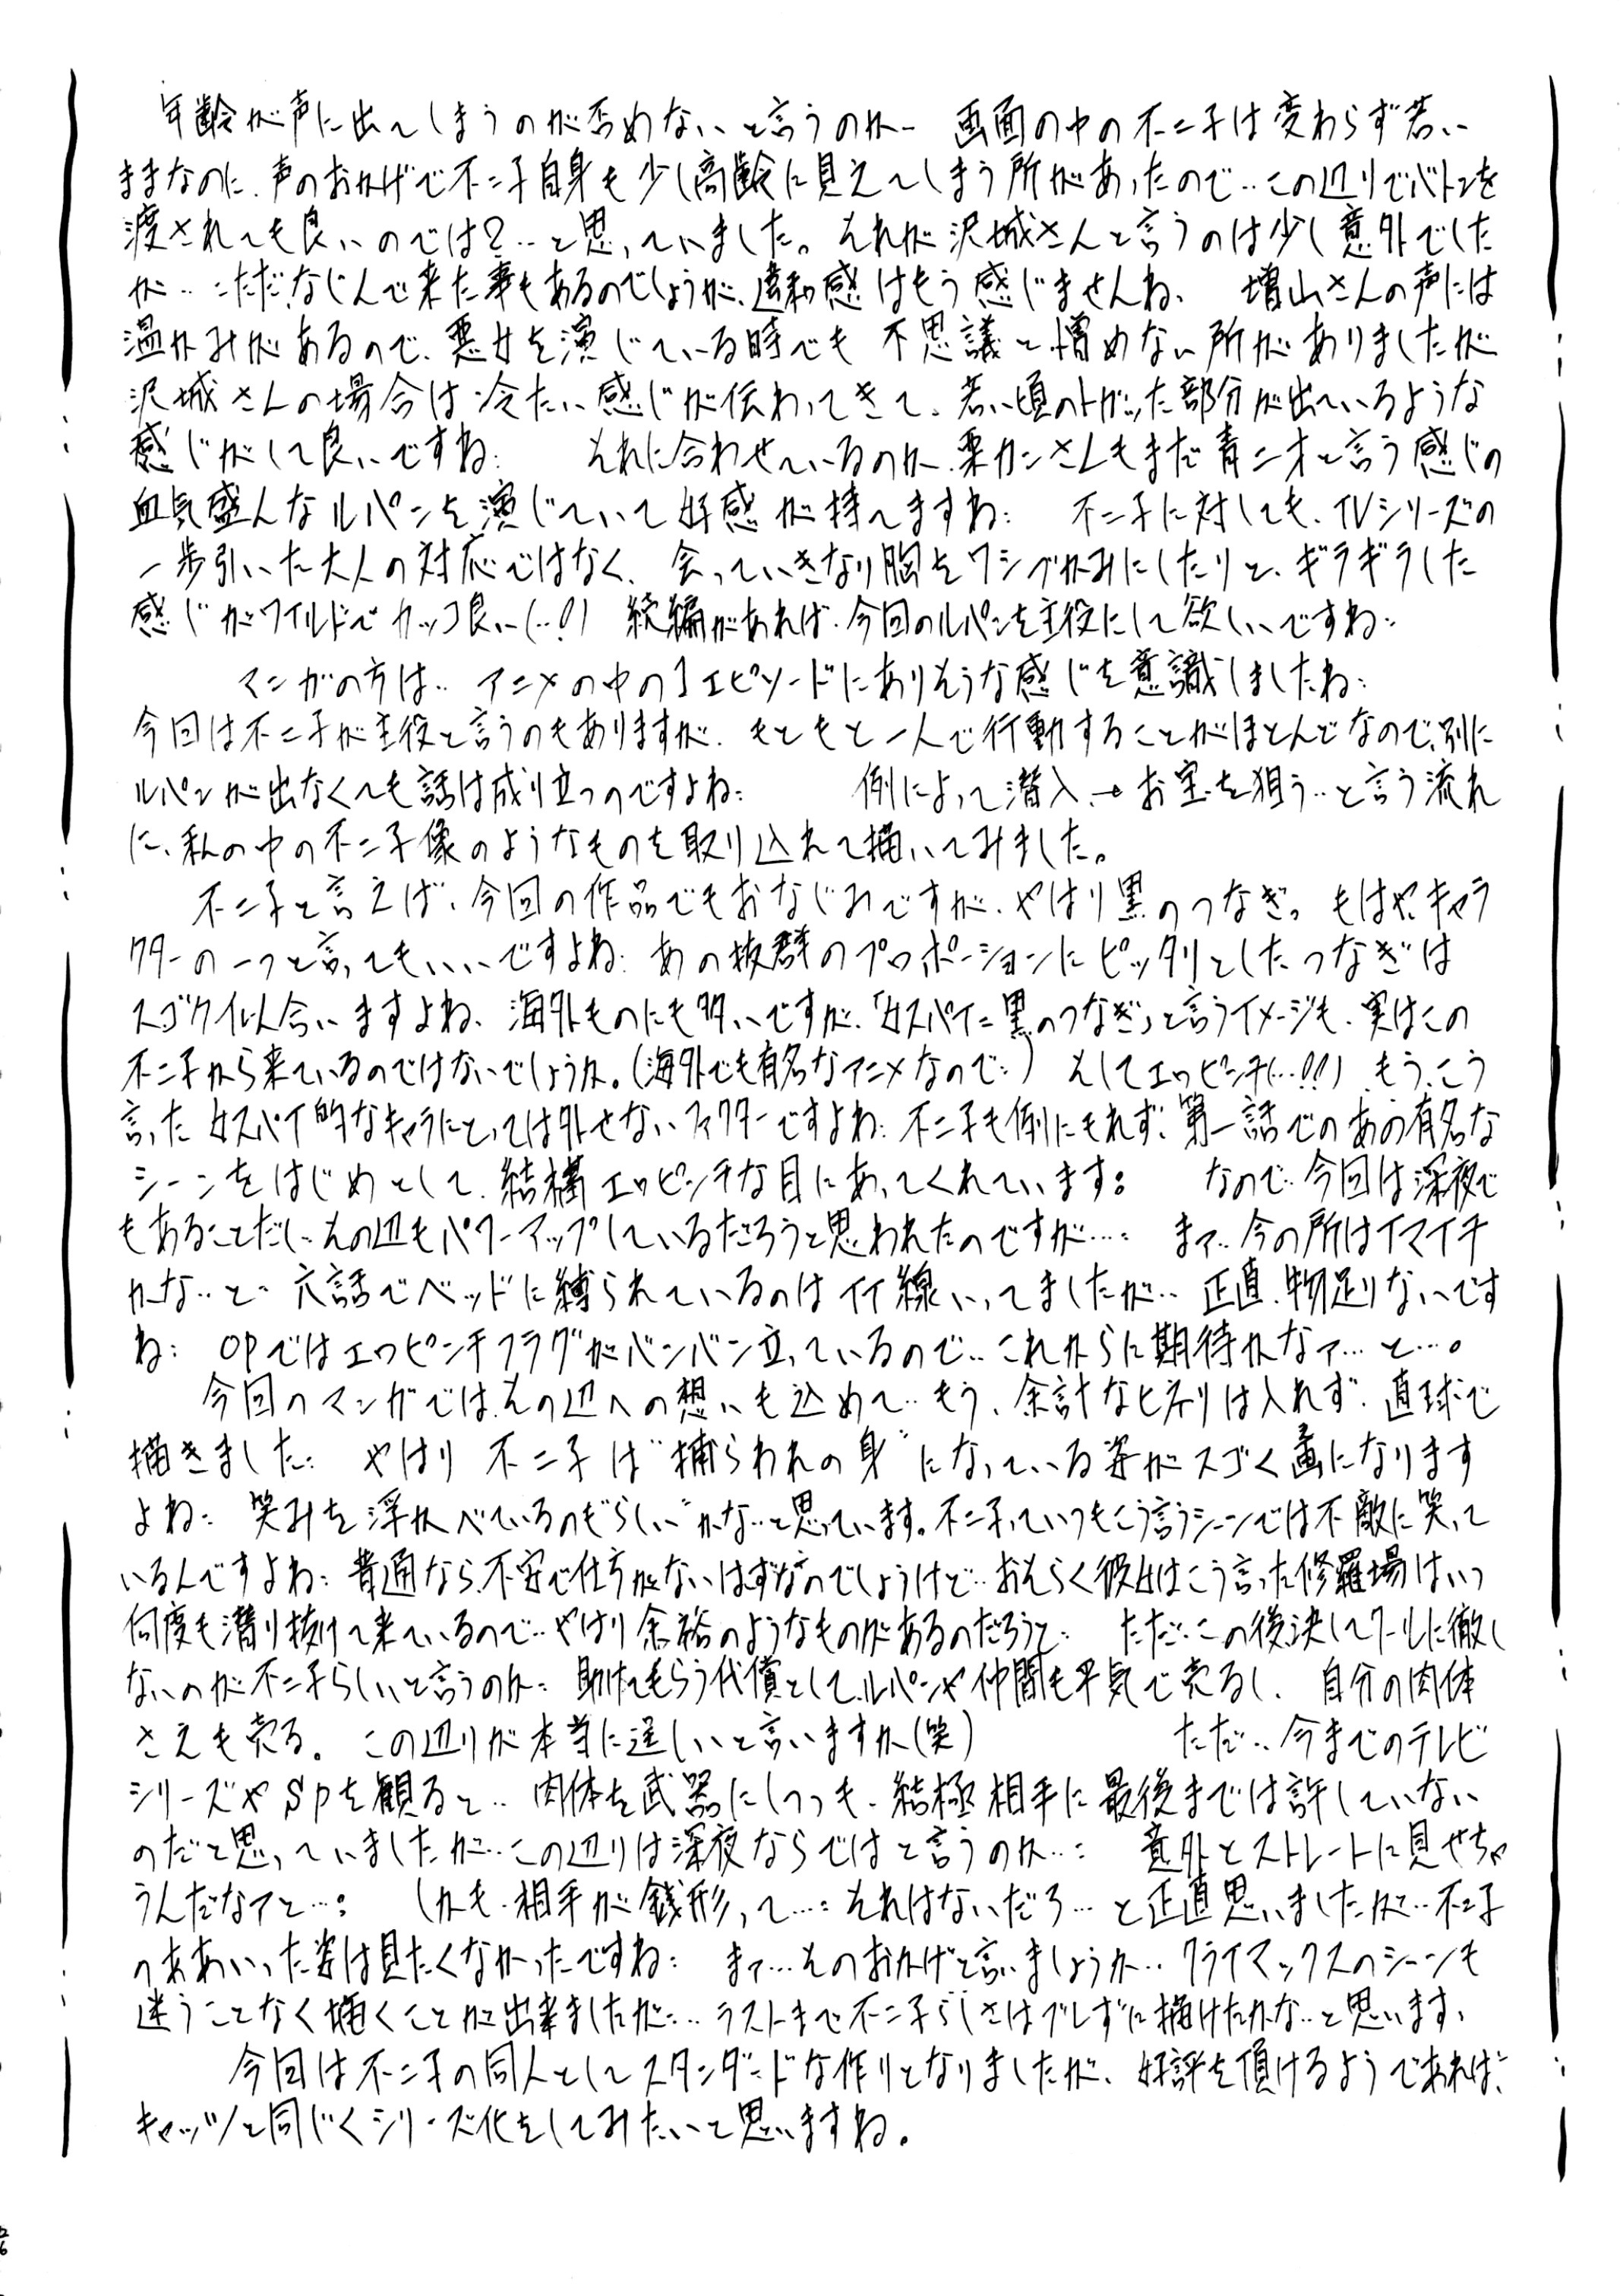 年齢が声に出てしまうのが否めないと言うのか‥ 画面の中の不二子は変わらず若い
ままなのに、声のおかげで不二子自身も少し高齢に見えてしまう所があったので‥この辺りでバトンを
渡されても良いのでは?‥と思っていました。それが沢城さんと言うのは少し意外でした
が‥ただ、なじんで来た事もあるのでしょうが、違和感はもう感じませんね、 増山さんの声には
温かみがあるので、悪女を演じている時でも不思議と憎めない所がありましたが
沢城さんの場合は冷たい感じが伝わってきて、若い頃のトガった部分が出ているような
感じがして良いですね: それに合わせているのか、栗カンさんもまだ青二才と言う感じの
血気盛んなルパンを演じていて好感が持てますね: 不二子に対しても、TVシリーズの
一歩引いた大人の対応ではなく、会っていきなり胸をワシヅかみにしたりと、ギラギラした
感じがワイルドでカッコ良い(‥!) 続編があれば、今回のルパンを主役にして欲しいですね‥
マンガの方は‥アニメの中の1エピソードにありそうな感じを意識しましたね:
今回は不二子が主役と言うのもありますが、もともと一人で行動することがほとんどなので、別に
ルパンが出なくても話は成り立つのですよね: 例によって潜入→お宝を狙う‥と言う流れ
に、私の中の不二子像のようなものを取り込れて描いてみました。
不二子と言えば、今回の作品でもおなじみですが、やはり黒のつなぎ。もはや、キャラ
クターの一つと言ってもいいですよね: あの抜群のプロポーションにピッタリとしたつなぎは
スゴク似合いますよね、海外ものにも多いですが、「女スパイ=黒のつなぎ」と言うイメージも、実はこの
不二子から来ているのではないでしょうか。(海外でも有名なアニメなので:) そしてエロピンチ(…!!) もう、こう
言った女スパイ的なキャラにとっては外せないファクターですよね: 不二子も例にもれず、第一話でのあの有名な
シーンをはじめとして、結構エロピンチな目にあってくれています: なので‥今回は深夜で
もあることだし‥その辺もパワーアップしているだろうと思われたのですが…: まァ‥今の所はイマイチ
かな‥と‥六話でベッドに縛られているのはイイ線いってましたが‥正直、物足りないです
ね: OPではエロピンチフラグがバンバン立っているので‥これからに期待かなァ…と…。
今回のマンガでは、その辺への想いも込めて‥もう、余計なヒネリは入れず、直球で
描きました: やはり不二子は“捕らわれの身”になっている姿がスゴく画になります
よね: 笑みを浮かべているのも“らしい”かな‥と思っています。不二子っていつもこう言うシーンでは不敵に笑って
いるんですよね: 普通なら、不安で仕方がないはずなのでしょうけど‥おそらく彼女はこう言った修羅場はいつ
何度も潜り抜けて来ているので‥やはり余裕のようなものがあるのだろうと‥ ただ‥この後決してクールに徹し
ないのが不二子らしいと言うのか: 助けてもらう代償として、ルパンや仲間も平気で売るし、自分の肉体
さえも売る。この辺りが本当に逞しいと言いますか(笑) ただ‥今までのテレビ
シリーズやSPを観ると‥肉体を武器にしつつも、結極相手に最後までは許していない
のだと思っていましたが‥この辺りは深夜ならではと言うのか‥: 意外とストレートに見せちゃ
うんだなァと…: しかも、相手が銭形って…: それはないだろ…と正直思いましたが‥不二子
のああいった姿は見たくなかったですね: まァ…そのおかげと言いましょうか‥クライマックスのシーンも
迷うことなく描くことが出来ましたが:‥ラストまで不二子らしさはブレずに描けたかな‥と思います、
今回は不二子の同人としてスタンダードな作りとなりましたが、好評を頂けるようであれば、
キャッツと同じくシリーズ化をしてみたいと思いますね。